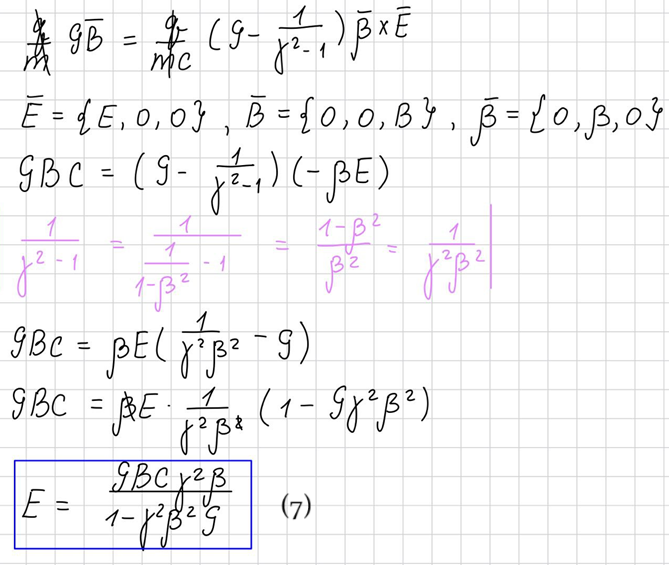 q/m GB̄ = q/mc (G - 1/(γ² - 1)) β̄ × Ē
Ē = {E, 0, 0}, B̄ = {0, 0, B}, β̄ = {0, β, 0}
GBC = (G - 1/(γ² - 1)) (-βE)
1/(γ² - 1) = 1/(1/(1-β²) - 1) = (1-β²)/β² = 1/(γ²β²)
GBC = βE (1/(γ²β²) - G)
GBC = βE · 1/(γ²β²) (1 - Gγ²β²)
E = GBCγ²β/(1-γ²β²G) (7)